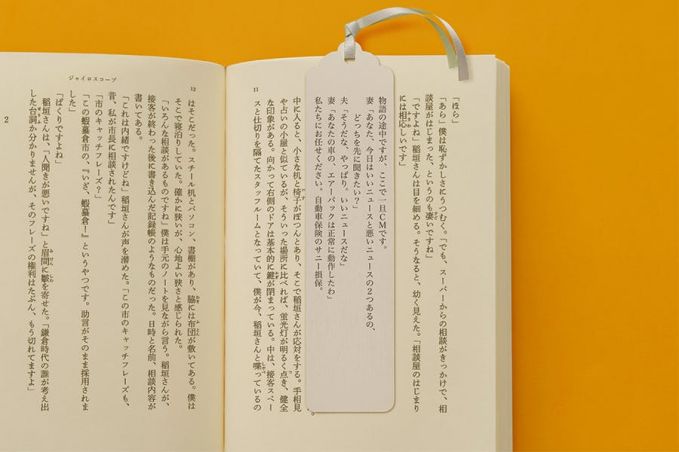 「ほら」
「あら」僕は恥ずかしさにうつむく。「でも、スーパーからの相談がきっかけで、相
談屋がはじまった、というのも凄いですね」
「ですよね」稲垣さんは目を細める。そうなると、幼く見えた。「相談屋のはじまり
には相応しいです」
物語の途中ですが、ここで一旦CMです。
妻「あなた、今日はいいニュースと悪いニュースの2つあるの、
どっちを先に聞きたい？」
夫「そうだな、やっぱり。いいニュースだな」
妻「あなたの車の、エアーバックは正常に動作したわ」
私たちにお任せください。自動車保険のサニー損保。
中に入ると、小さな机と椅子がぽつんとあり、そこで稲垣さんが応対をする。手相見
や占いの小屋と似ているが、そういった場所に比べれば、蛍光灯が明るく点き、健全
な印象がある。向かって右側のドアは基本的に鍵が閉まっている。中は、接客スペー
スと仕切りを隔てたスタッフルームとなっていて、僕が今、稲垣さんと喋っているの
11
12
ジャイロスコープ
はそこだった。スチール机とパソコン、書棚があり、脇には布団が敷いてある。僕は
そこで寝泊りしていた。確かに狭いが、心地よい狭さと感じられた。
「いろんな相談があるものですね」僕は手元のノートを見ながら言う。稲垣さんが、
接客が終わった後に書き込んだ記録帳のようなものだった。日時と名前、相談内容が
書いてある。
「これは内緒ですけどね」稲垣さんが声を潜めた。「この市のキャッチフレーズも、
昔、私が市長に相談されたんです」
「市のキャッチフレーズ？」
「この蝦蟇倉市の、『いざ、蝦蟇倉！』というやつです。助言がそのまま採用されま
した」
「ぱくりですよね」
稲垣さんは、「人聞きが悪いですね」と眉間に皺を寄せた。「鎌倉時代の誰が考え出
した台詞か分かりませんが、そのフレーズの権利はたぶん、もう切れてますよ」
2